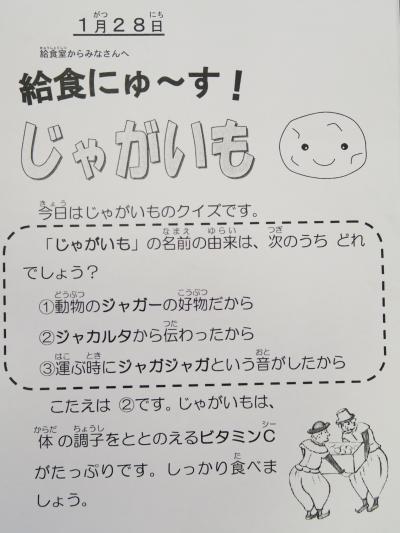 1月28日
給食室からみなさんへ
給食にゅ～す！
じゃがいも
今日はじゃがいものクイズです。
「じゃがいも」の名前の由来は、次のうち どれ
でしょう？
①動物のジャガーの好物だから
②ジャカルタから伝わったから
③運ぶ時にジャガジャガという音がしたから
こたえは ②です。じゃがいもは、
体の調子をととのえるビタミンC
がたっぷりです。しっかり食べま
しょう。